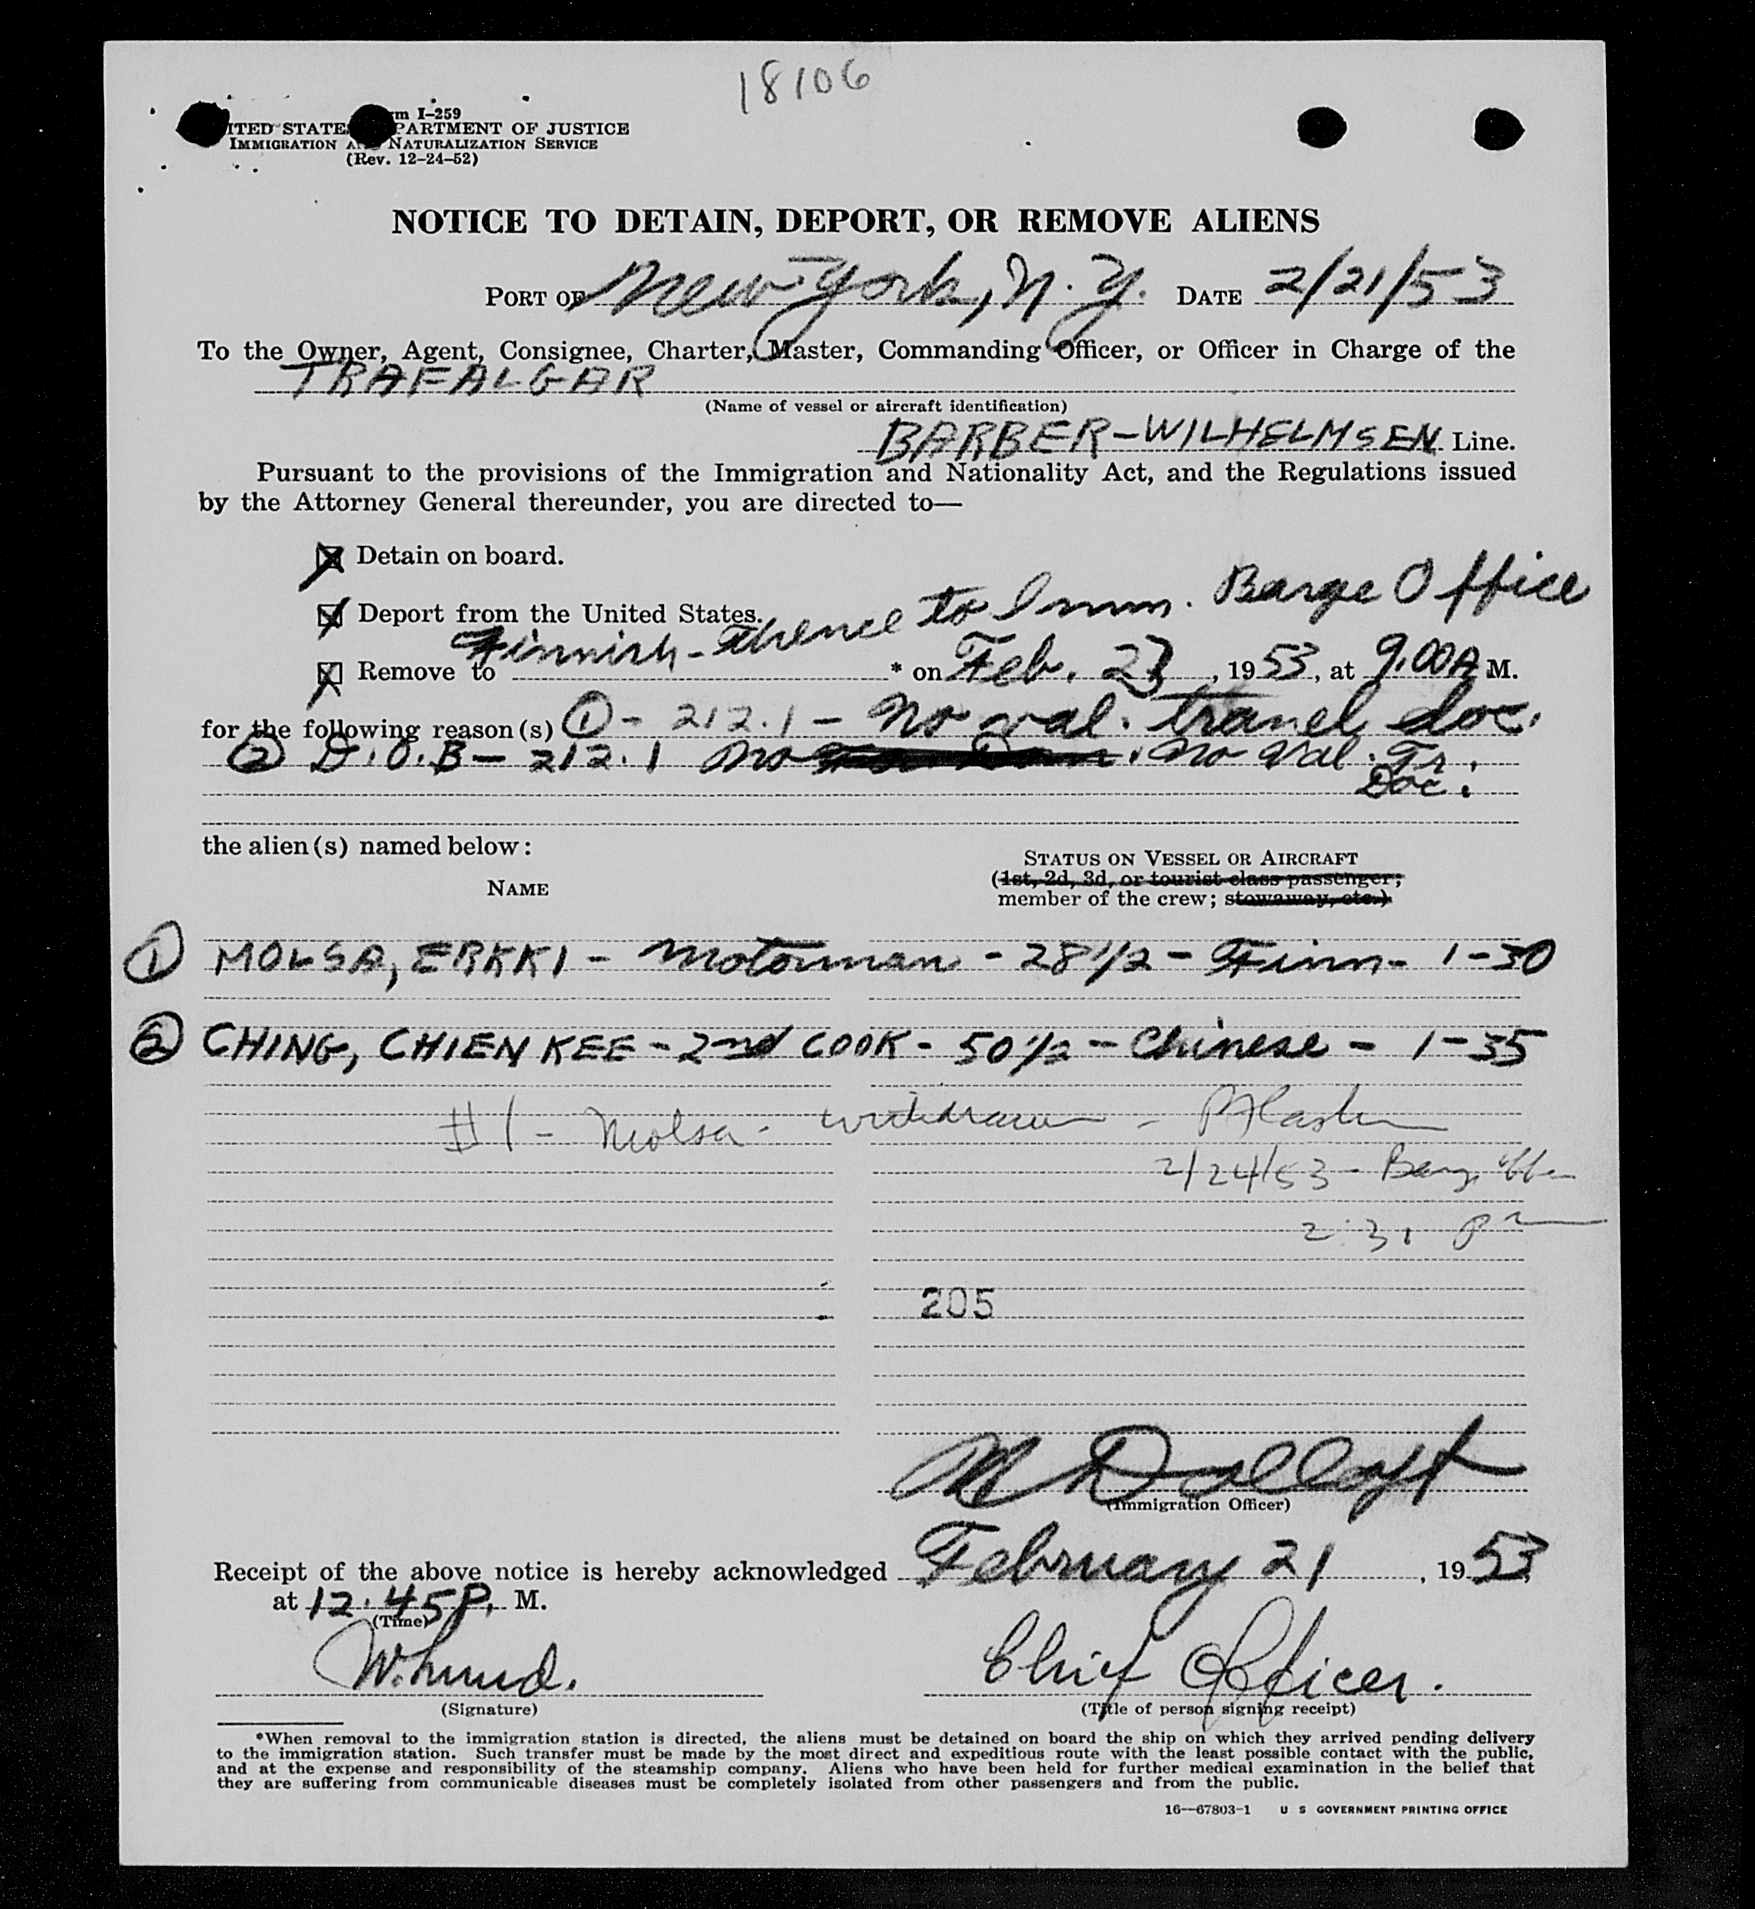 18106
m I-259
ITED STATE PARTMENT OF JUSTICE
IMMIGRATION A NATURALIZATION SERVICE
(Rev. 12-24-52)
NOTICE TO DETAIN, DEPORT, OR REMOVE ALIENS
PORT OF New York, N.Y. DATE 2/21/53
To the Owner, Agent, Consignee, Charter, Master, Commanding Officer, or Officer in Charge of the
TRAFALGAR
(Name of vessel or aircraft identification)
BARBER-WILHELMSEN Line.
Pursuant to the provisions of the Immigration and Nationality Act, and the Regulations issued
by the Attorney General thereunder, you are directed to—
☒ Detain on board.
☒ Deport from the United States.
Finnish - thence to Imm. Barge Office
☒ Remove to * on Feb. 23, 1953, at 9.00 A M.
for the following reason(s) ① - 212.1 - No val. travel doc.
② D.O.B - 212.1 no . No val. Tr.
Doc.
the alien(s) named below:
STATUS ON VESSEL OR AIRCRAFT
NAME
(1st, 2d, 3d, or tourist class passenger;
member of the crew; stowaway, etc.)
① MOLSA, ERKKI - Motorman - 28 1/2 - Finn - 1-30
② CHING, CHIEN KEE - 2nd COOK - 50 1/2 - Chinese - 1-35
#1 - Molsa - withdrawn -
2/24/53 - Barge Office
2:31 pm
205
(Immigration Officer)
Receipt of the above notice is hereby acknowledged February 21, 1953,
at 12.45 P. M.
(Time)
W. Lund. Chief Officer.
(Signature) (Title of person signing receipt)
*When removal to the immigration station is directed, the aliens must be detained on board the ship on which they arrived pending delivery
to the immigration station. Such transfer must be made by the most direct and expeditious route with the least possible contact with the public,
and at the expense and responsibility of the steamship company. Aliens who have been held for further medical examination in the belief that
they are suffering from communicable diseases must be completely isolated from other passengers and from the public.
16—67803-1 U S GOVERNMENT PRINTING OFFICE